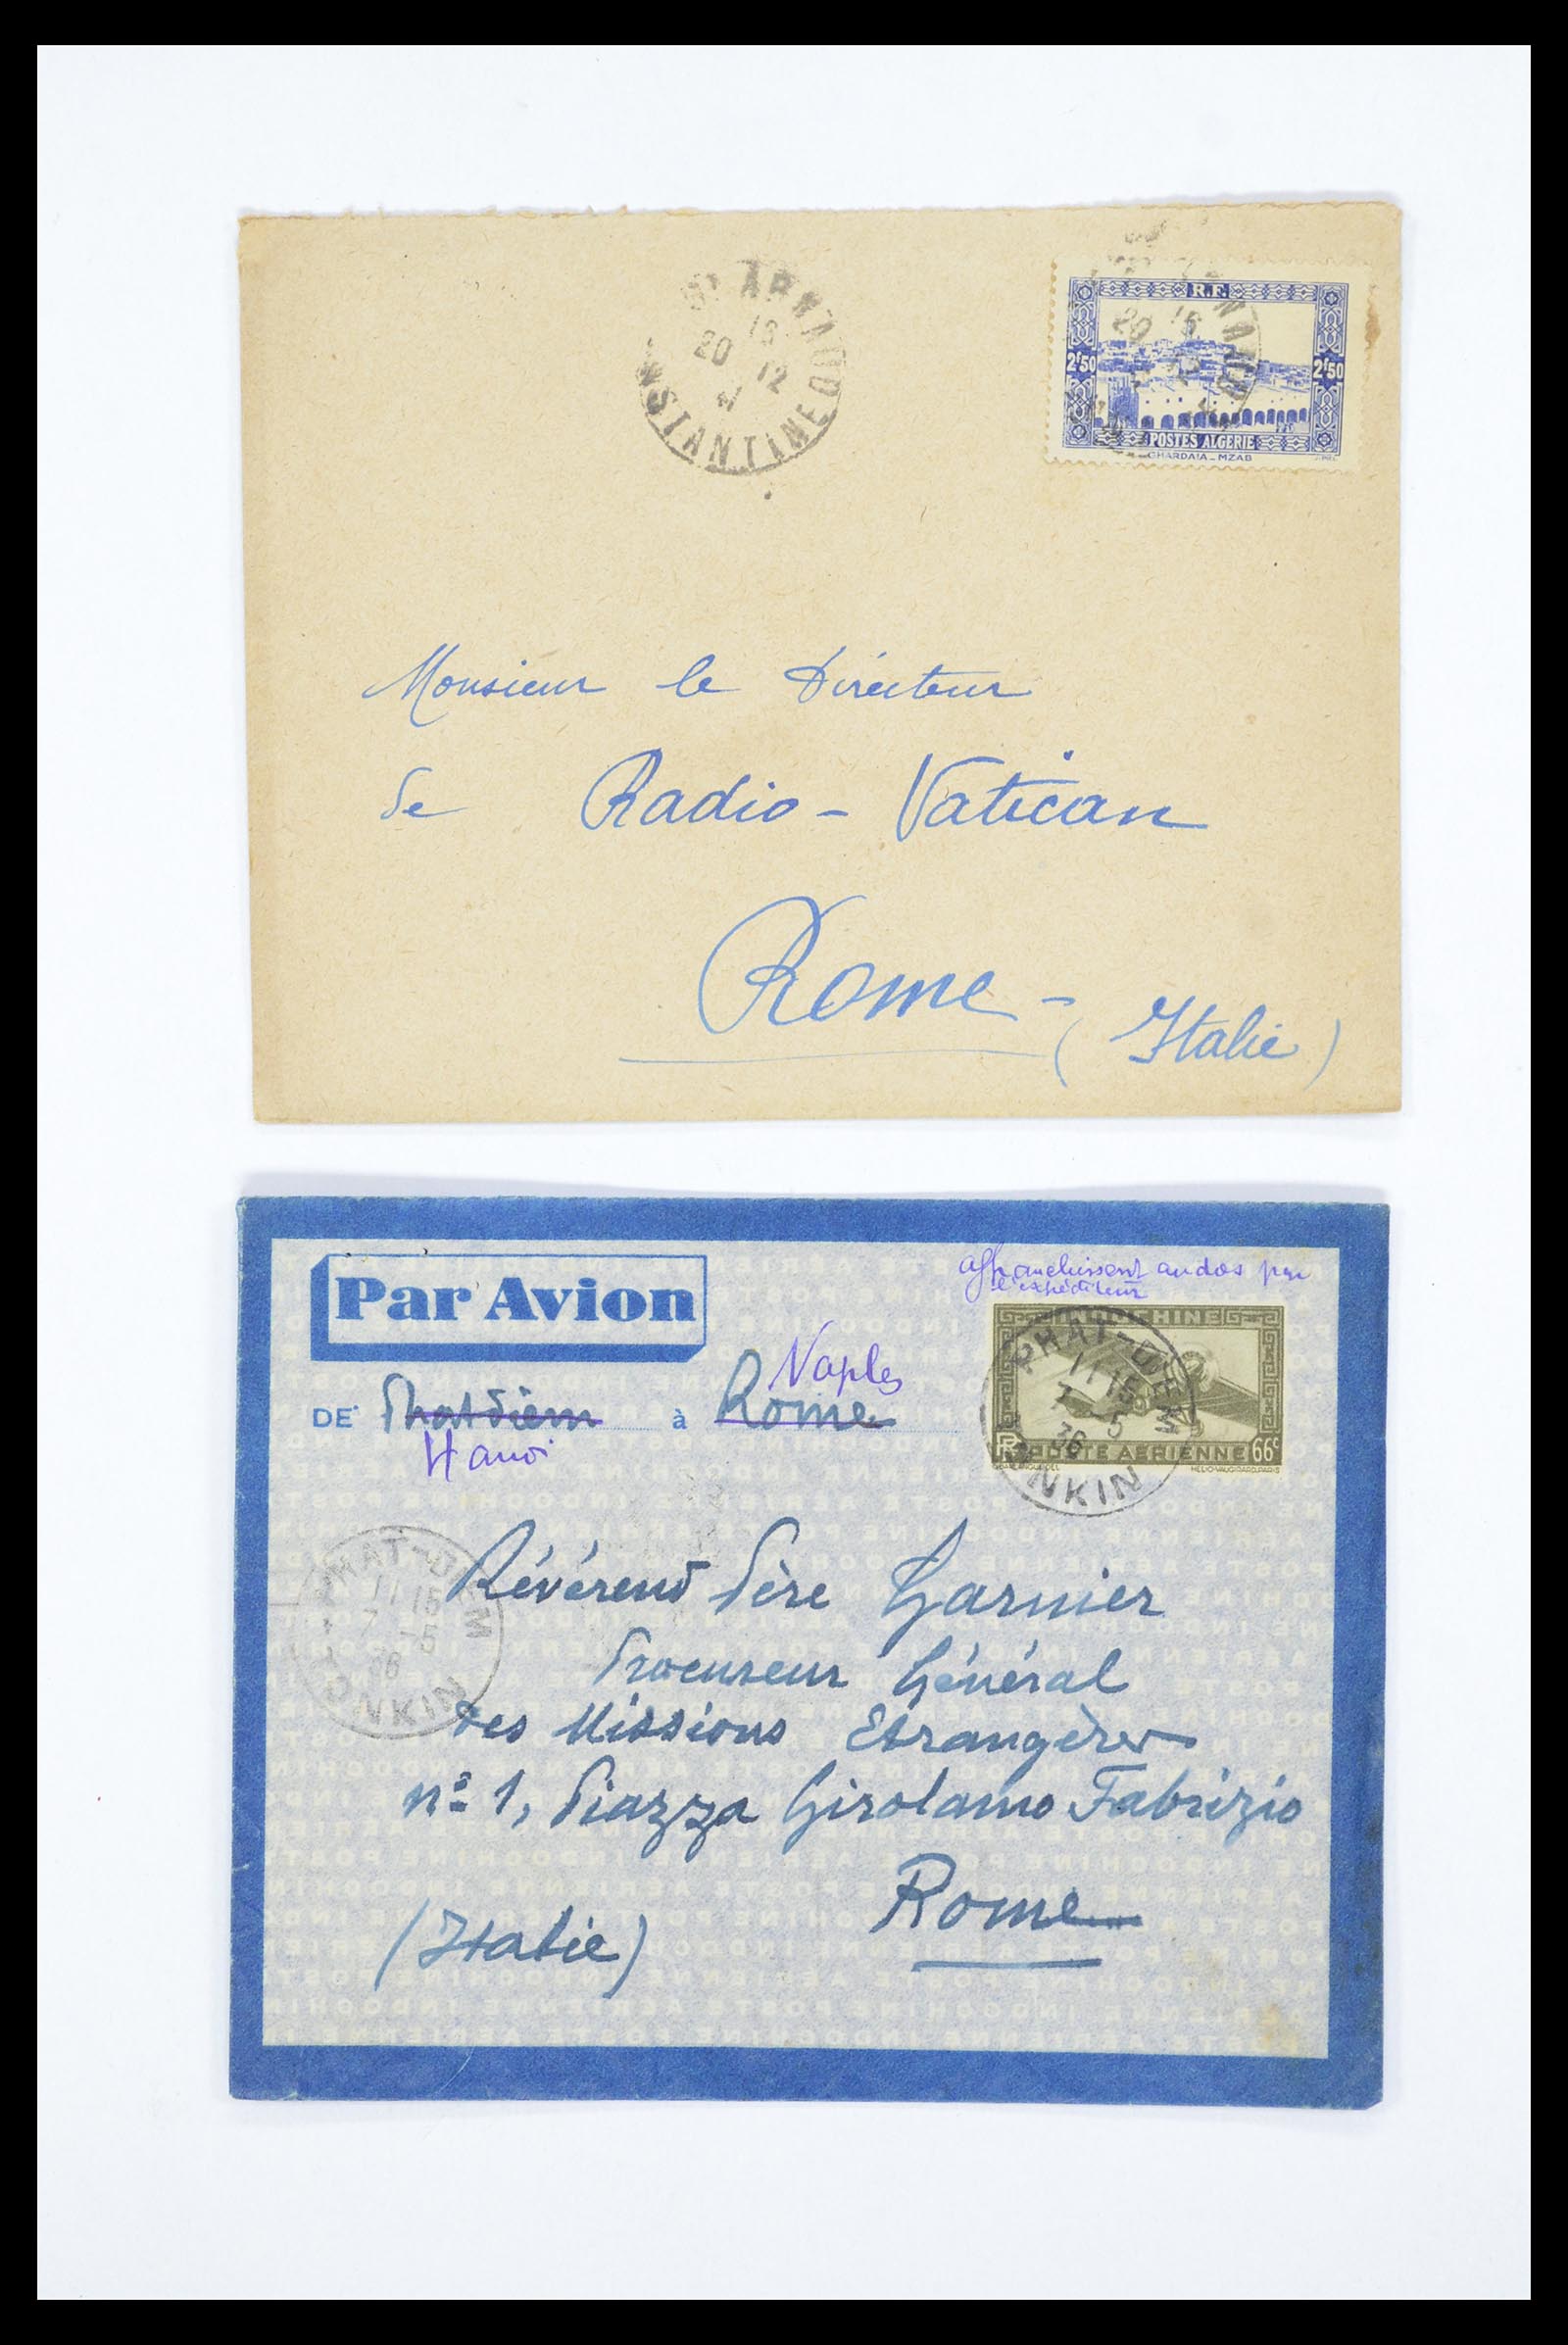 ST ARNAUD
16
20 12
41
CONSTANTINE
R.F.
2f50 2f50
POSTES ALGERIE
GHARDAIA _ MZAB
Monsieur le Directeur
de Radio - Vatican
Rome -
(Italie)
Par Avion
affranchissent au dos par
l'expéditeur
INDOCHINE
PHAT-DIEM
11 15
7 -5
36
TONKIN
RF POSTE AÉRIENNE 66c
HÉLIO-VAUGIRARD, PARIS
Naples
DE Phatdiem à Rome
Hanoi
PHAT-DIEM
11 15
7 -5
36
TONKIN
Révérend Père Garnier
Procureur Général
des Missions Etrangères
no 1, Piazza Girolamo Fabrizio
Rome
(Italie)